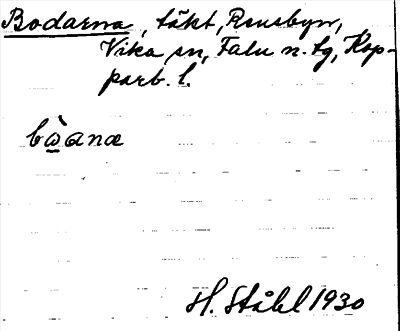 Bodarna, täkt, Rensbyn,
Vika sn, Falu n. tg, Kop-
parb. l.
bὼana
H. Ståhl 1930